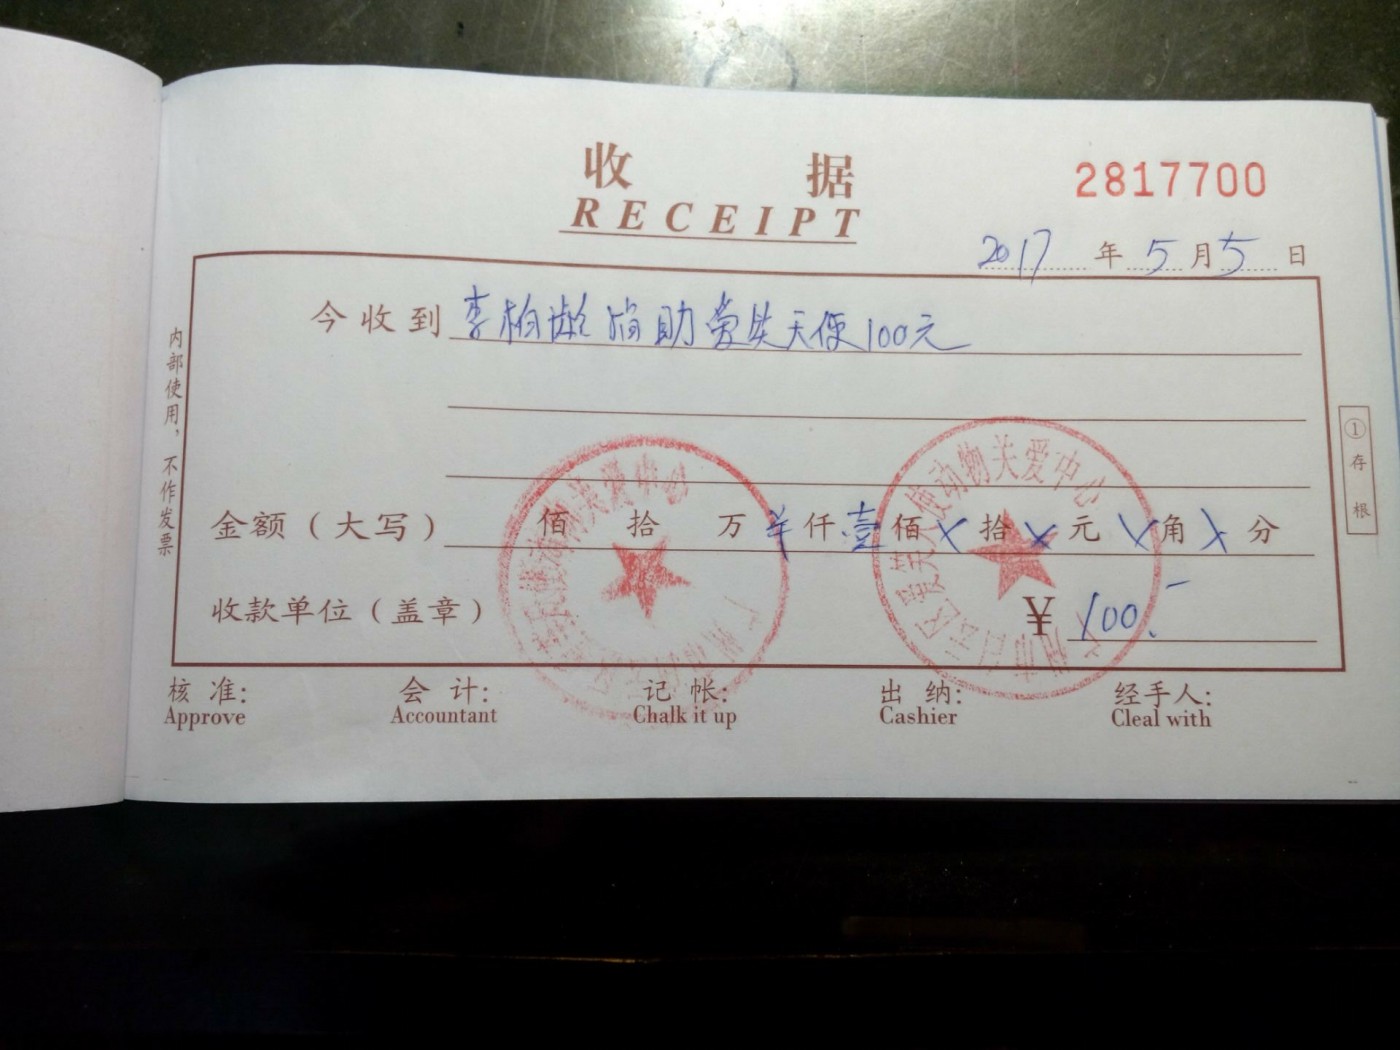 收 据
RECEIPT
2817700
2017年5月5日
今收到 李柏龄捐助爱笑天使100元
金额（大写） 佰 拾 万 羊 仟 壹 佰 X 拾 X 元 X 角 X 分
收款单位（盖章） ¥ 100.-
内部使用，不作发票
①存根
核 准: 会 计: 记 帐: 出 纳: 经手人:
Approve Accountant Chalk it up Cashier Cleal with
动物关爱中心